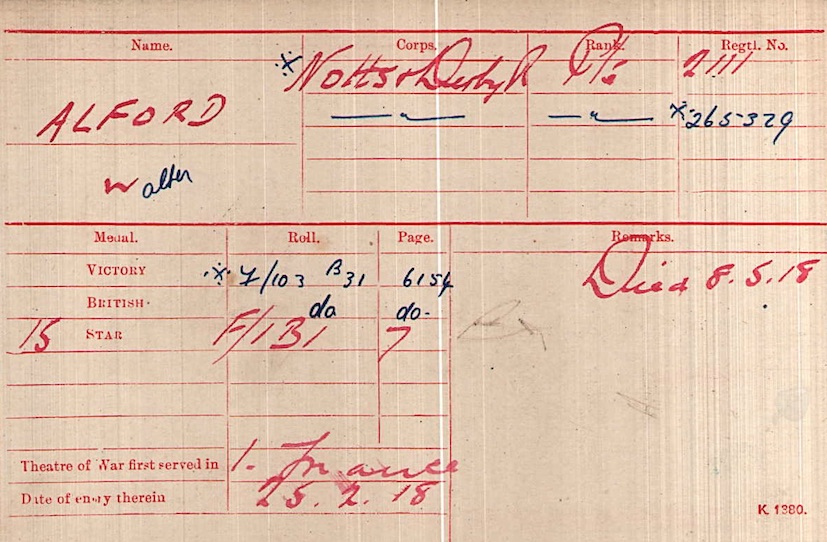 Name. Corps. Rank. Regtl. No.
※ Notts & Derby R Pte 2111
ALFORD
—〃— —〃— ※ 265329
Walter
Medal. Roll. Page. Remarks.
VICTORY ※ F/103 B31 6154 Died 8.5.18
BRITISH do do
15 STAR F/1B1 7
Theatre of War first served in 1. France
Date of entry therein 25.2.18
K. 1380.